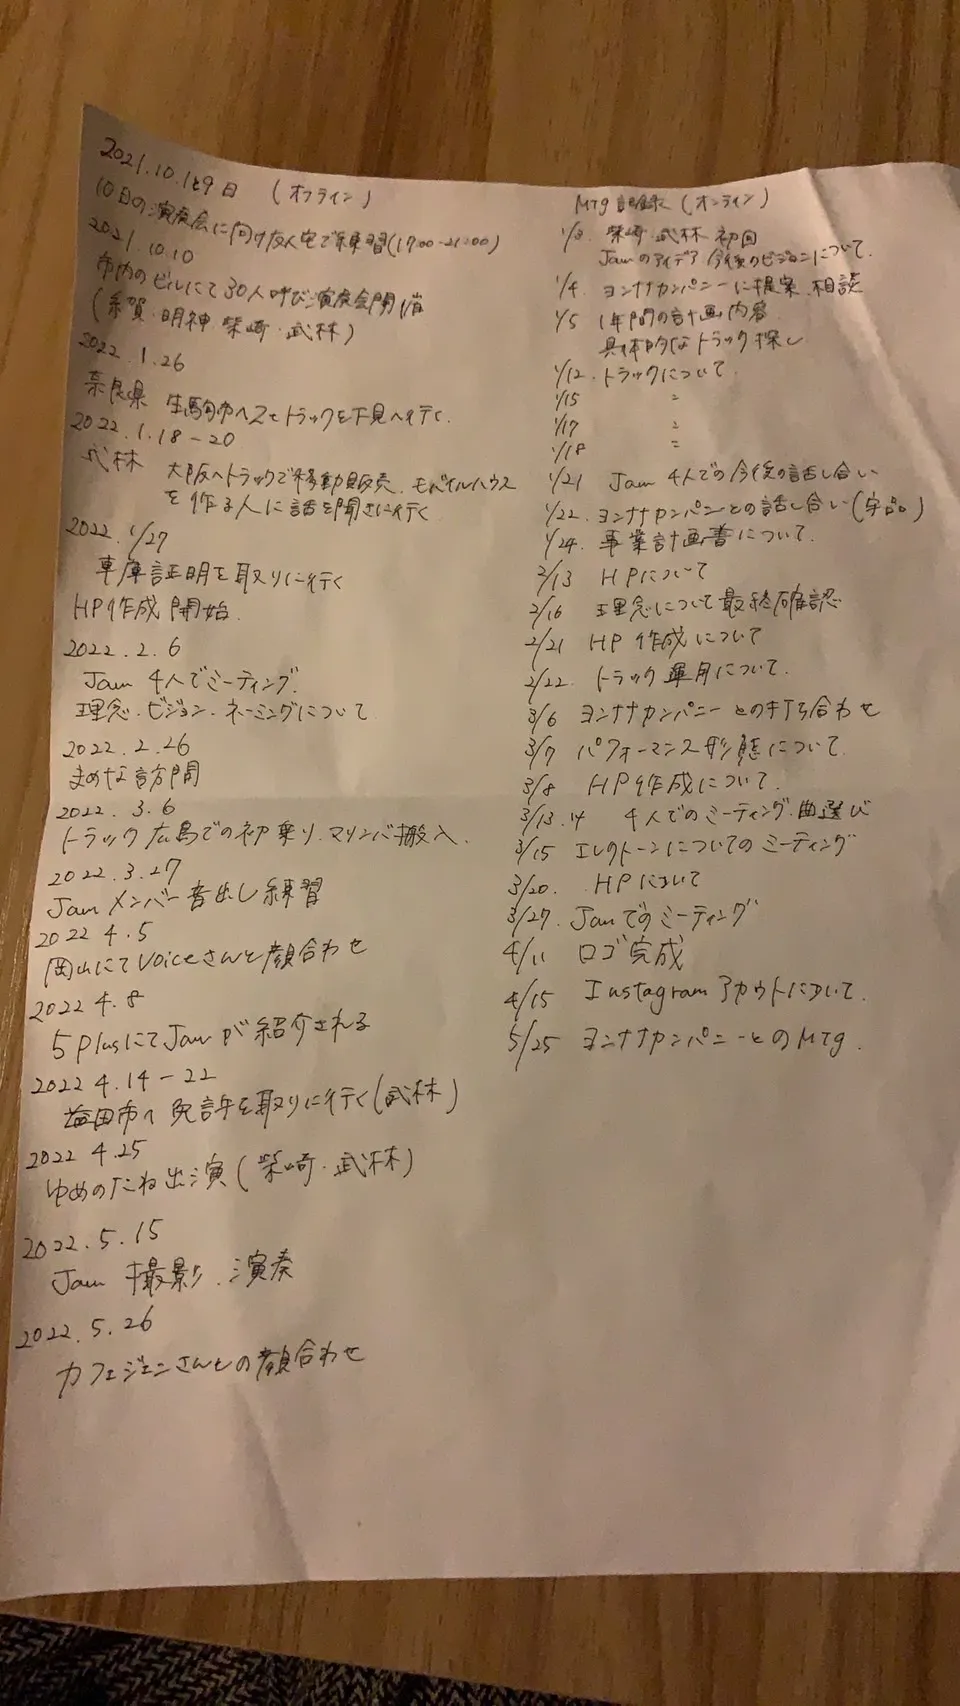 2021.10.1と9日 (オフライン)
10日の演奏会に向け友人宅で練習(17:00-21:00)
2021.10.10
市内のビルにて30人呼び演奏会開催
(糸賀・明神・柴崎・武林)
2022.1.26
奈良県 生駒市へ2tトラックを下見へ行く.
2022.1.18-20
武林 大阪へトラックで移動販売. モバイルハウス
を作る人に話を聞きに行く
2022.1/27
車庫証明を取りに行く
HP作成開始.
2022.2.6
Jam 4人でミーティング.
理念.ビジョン.ネーミングについて
2022.2.26
まめな訪問
2022.3.6
トラック広島での初乗り.マリンバ搬入.
2022.3.27
Jamメンバー音出し練習
2022 4.5
岡山にてVoiceさんと顔合わせ
2022 4.8
5 plusにてJamが紹介される
2022 4.14-22
益田市へ 免許を取りに行く(武林)
2022 4.25
ゆめのたね出演(柴崎・武林)
2022.5.15
Jam 撮影.演奏
2022.5.26
カフェジェンさんとの顔合わせ
Mtg記録 (オンライン)
1/3. 柴崎・武林 初回
Jamのアイデア 今後のビジョンについて.
1/4 ヨンナナカンパニーに提案.相談
1/5 1年間の計画内容
具体的なトラック探し
1/12.トラックについて.
1/15 〃
1/17 〃
1/18 〃
1/21 Jam 4人での今後の話し合い
1/22.ヨンナナカンパニーとの話し合い(宇品)
1/24. 事業計画書について.
2/13 HPについて
2/16 理念について最終確認
2/21 HP作成について
2/22. トラック運用について.
3/6 ヨンナナカンパニーとの打ち合わせ
3/7 パフォーマンス形態について.
3/8 HP作成について.
3/13.14 4人でのミーティング.曲選び
3/15 エレクトーンについてのミーティング
3/20. HPについて
3/27. Jamでのミーティング
4/11 ロゴ完成
4/15 Instagramアカウトについて.
5/25 ヨンナナカンパニーとのMtg.